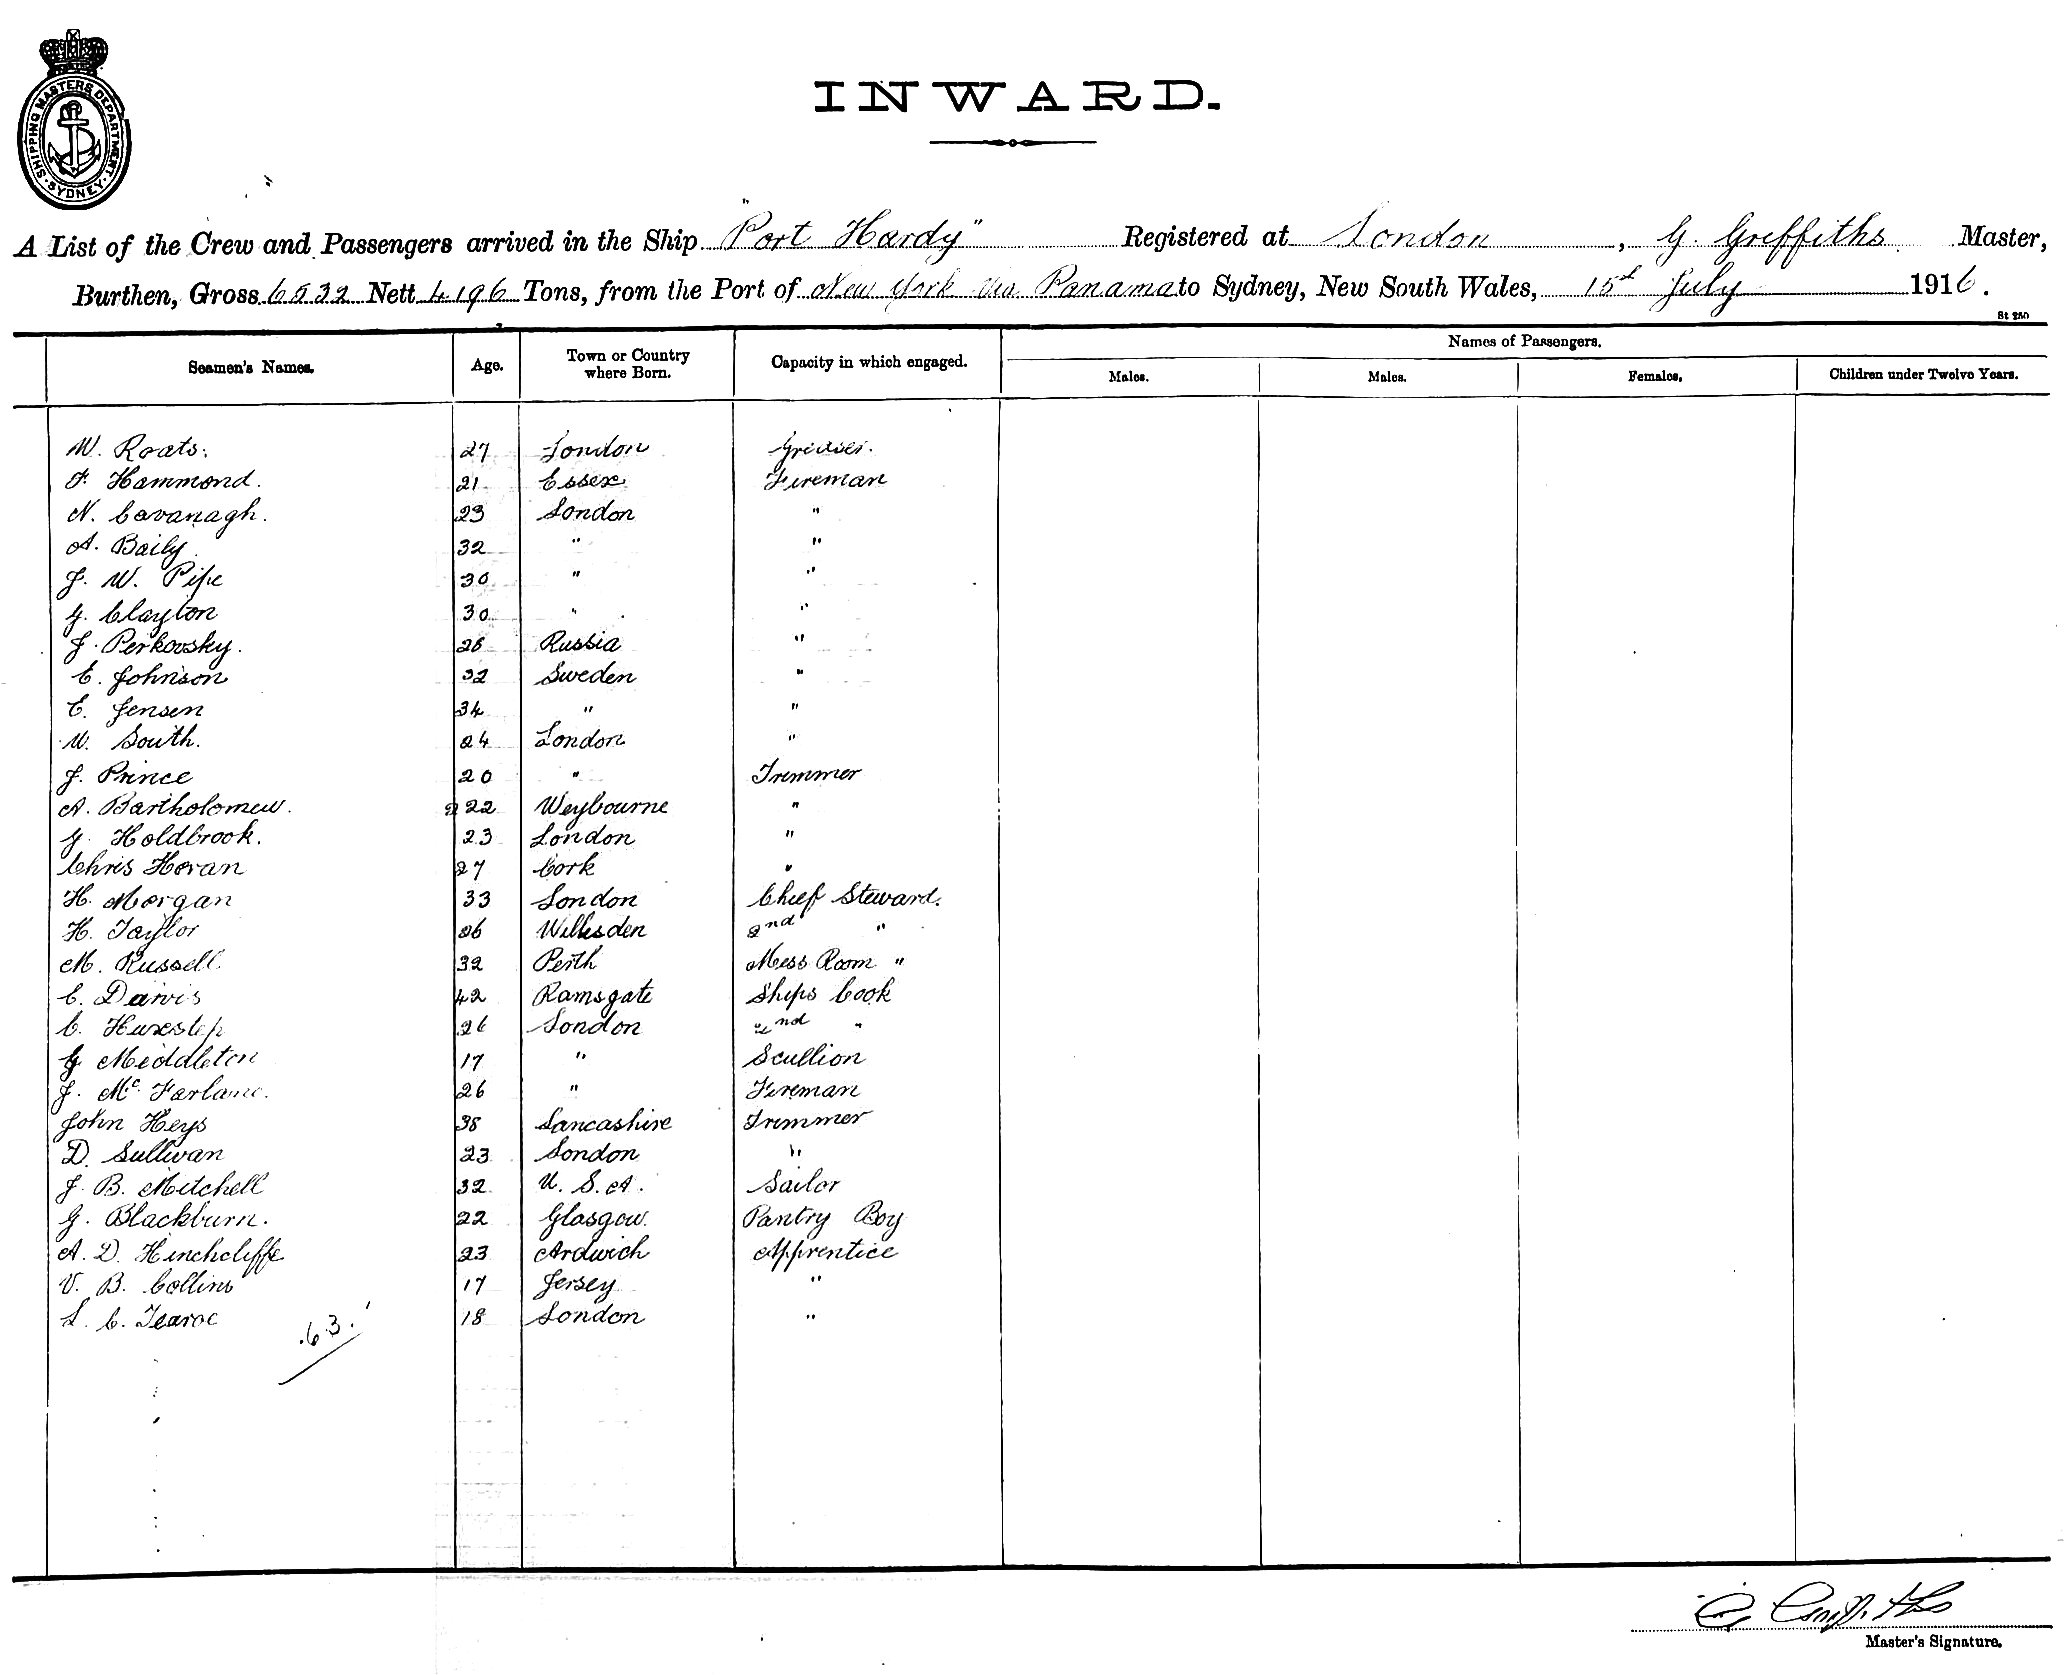 SHIPPING MASTERS DEPARTMENT. SYDNEY
INWARD.
A List of the Crew and Passengers arrived in the Ship "Port Hardy" Registered at London, G. Griffiths Master,
Burthen, Gross 6532 Nett 4196 Tons, from the Port of New York via Panama to Sydney, New South Wales, 15th July 1916.
St 250
Names of Passengers.
Seamen's Names. Age. Town or Country where Born. Capacity in which engaged. Males. Males. Females. Children under Twelve Years.
W. Roats. 27 London Greaser.
F. Hammond. 21 Essex Fireman
N. Cavanagh. 23 London "
A. Baily. 32 " "
J. W. Pipe 30 " "
G. Clayton 30 " "
J. Perkovsky. 28 Russia "
C. Johnson 32 Sweden "
C. Jensen 34 " "
W. South. 24 London "
J. Prince 20 " Trimmer
A. Bartholomew. 22 Weybourne "
G. Holdbrook. 23 London "
Chris Horan 27 Cork "
H. Morgan 33 London Chief Steward.
H. Taylor 26 Willesden 2nd "
M. Russell 32 Perth Mess Room "
C. Darvis 42 Ramsgate Ships Cook
C. Huxstep 26 London 2nd "
G Middleton 17 " Scullion
J. Mc Farlane. 26 " Fireman
John Heys 38 Lancashire Trimmer
D. Sullivan 23 London "
J. B. Mitchell 32 U.S.A. Sailor
G. Blackburn. 22 Glasgow. Pantry Boy
A. D. Hinchcliffe 23 Ardwich Apprentice
V. B. Collins 17 Jersey "
L. C. 18 London "
63.
G Griffiths
Master's Signature.